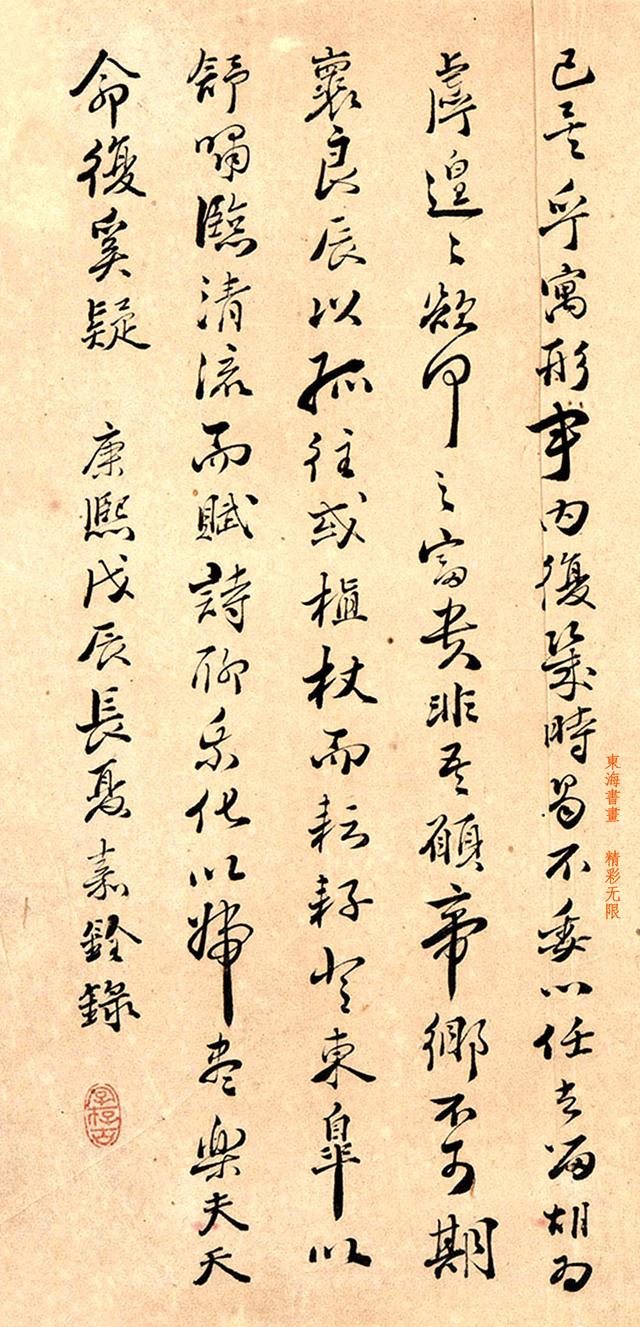 已矣乎寓形宇内復幾時曷不委心任去留胡為
虖遑〻欲何之富貴非吾願帝鄉不可期
褱良辰以孤往或植杖而耘耔登東臯以
舒嘯臨清流而賦詩聊乘化以歸盡樂夫天
命復奚疑 康熙戊辰長夏嘉銓錄
東海書畫 精彩无限